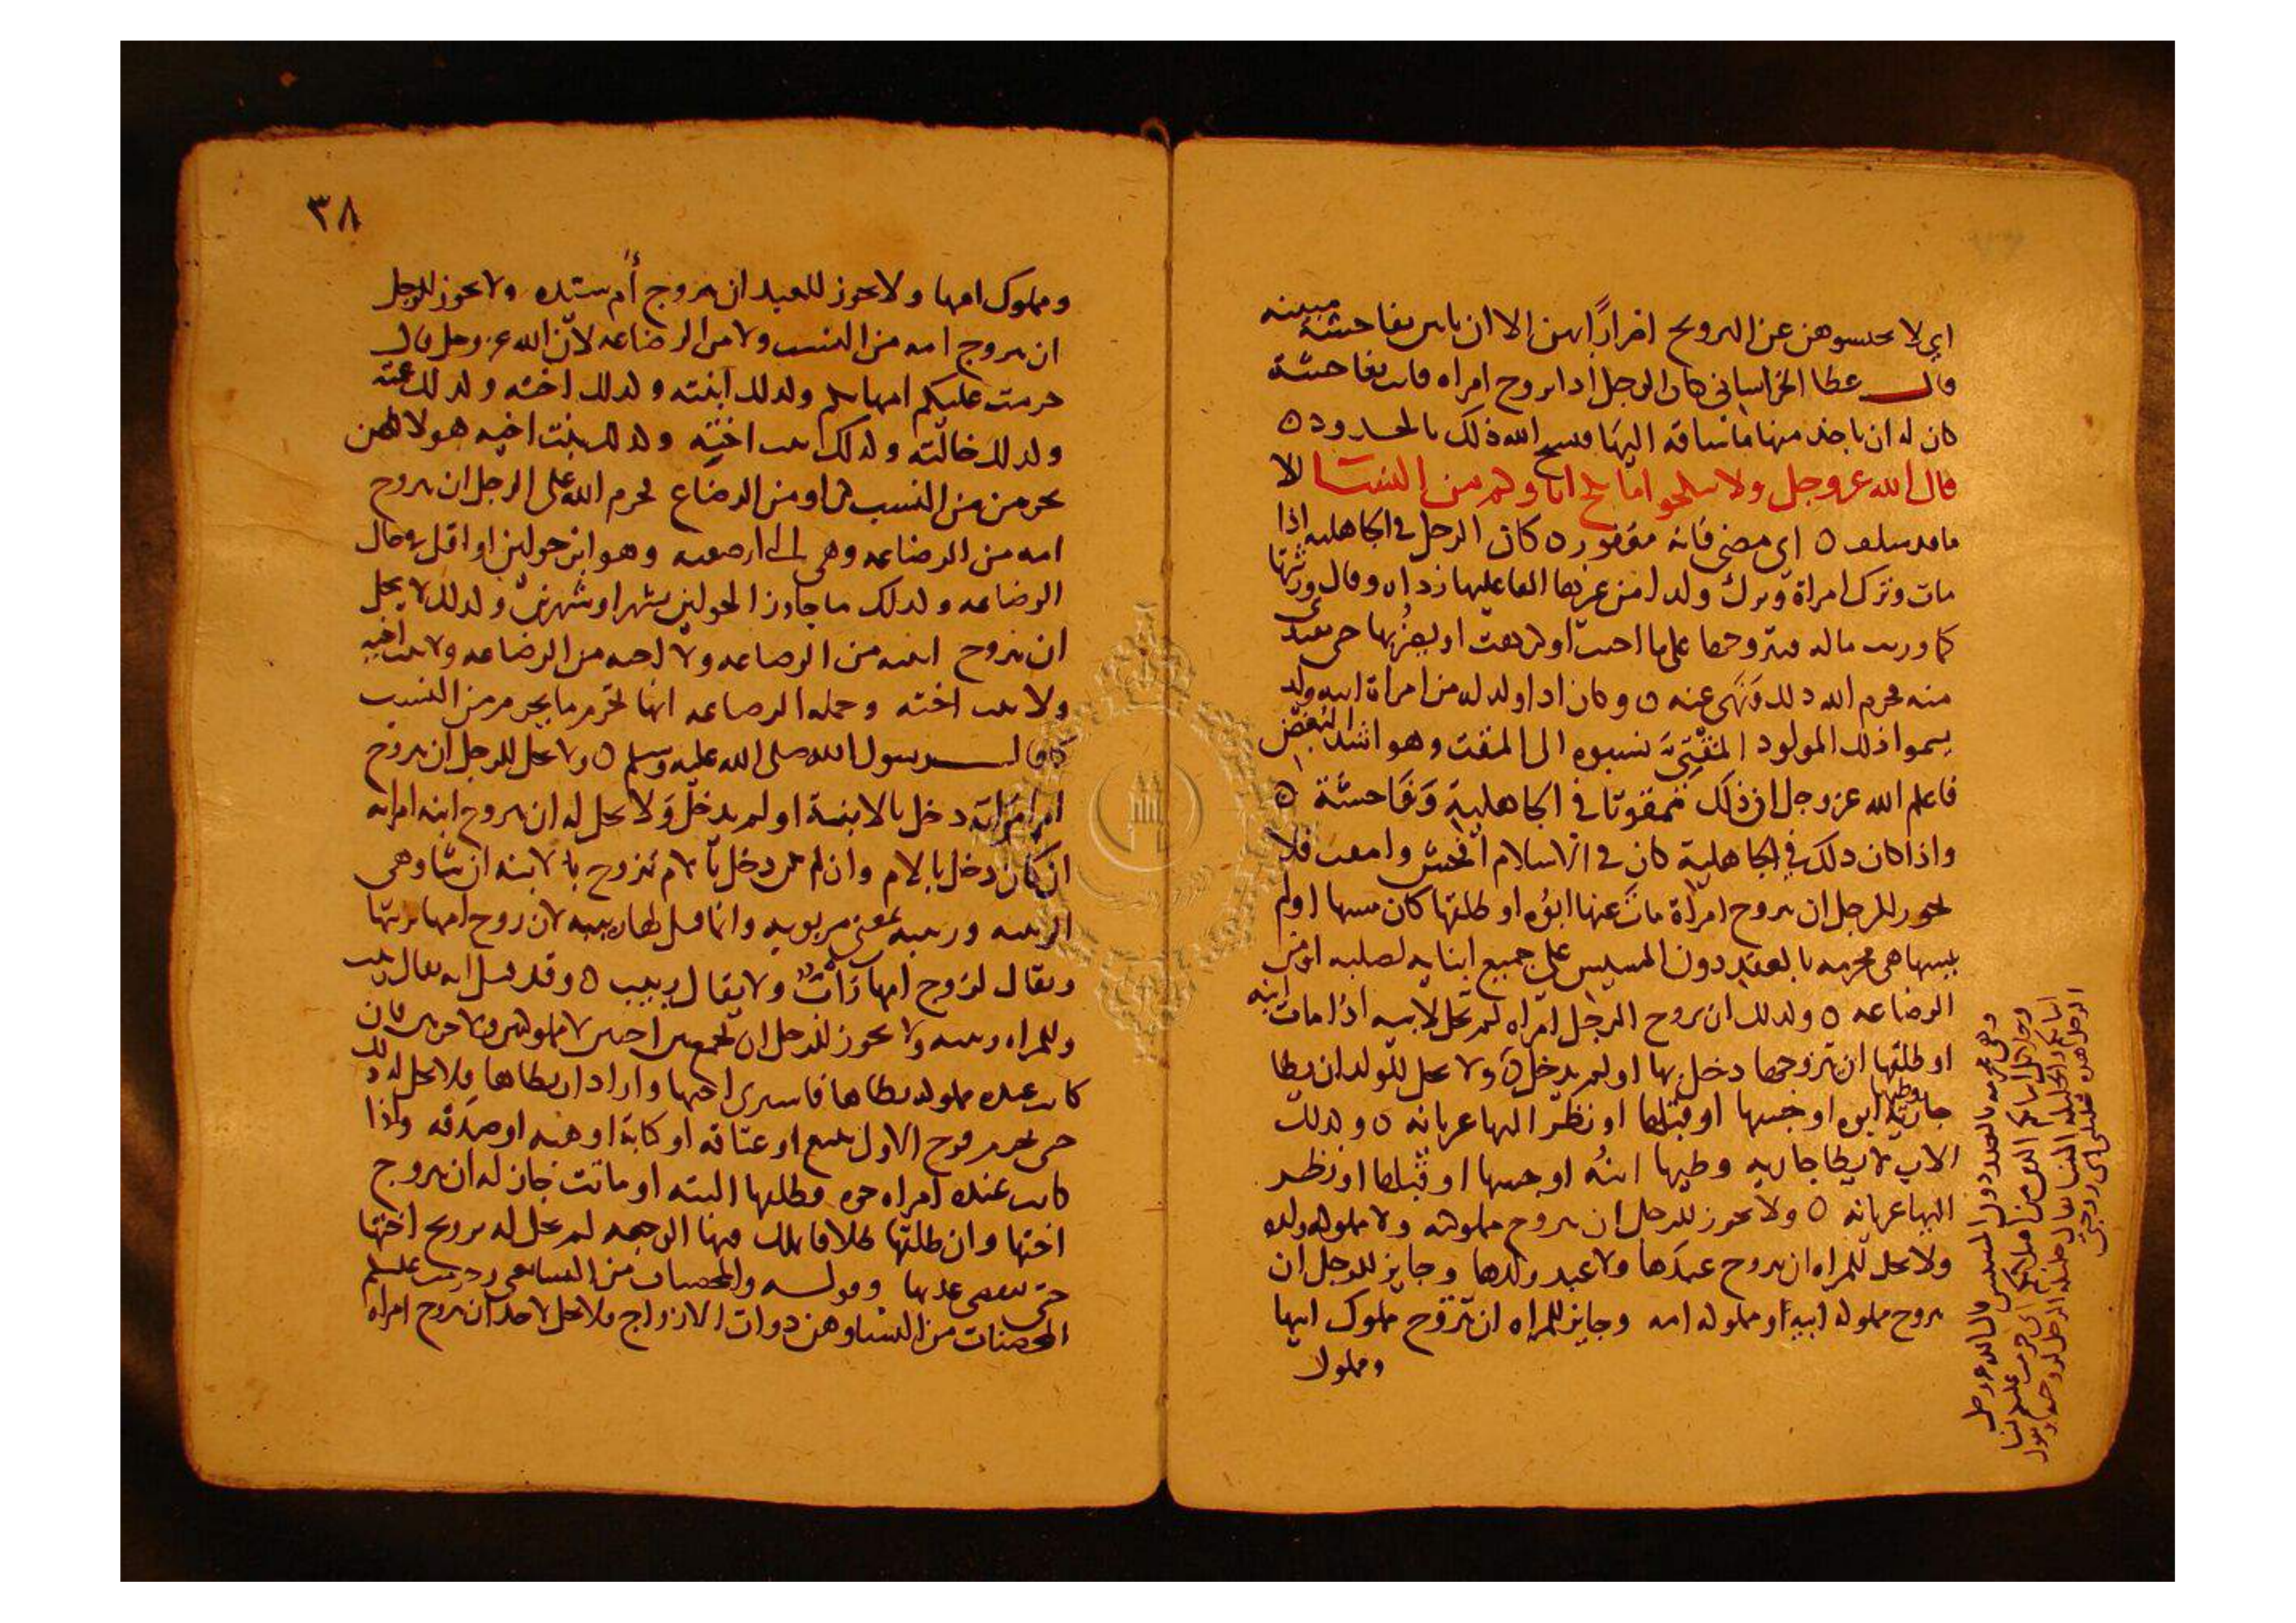 اي لا تحبسوهن عن التزويج اضرارًا بهن الا ان ياتين بفاحشة مبينه
قال عطا الخراساني كان الرجل اذا تزوج امراه فاتت بفاحشة
كان له ان ياخذ منها ما ساقه اليها فنسخ الله ذلك بالحدود ٥
قال الله عز وجل ولا تنكحوا ما نكح اباوكم من النسا الا
ما قد سلف ٥ اي مضى فانه مغفور ٥ كان الرجل في الجاهليه اذا
مات وترك امراة وترك ولدا من غيرها القا عليها رداه وقال ورثتها
كما ورثت ماله فيتزوجها على ما احبت او كرهت او يعضلها حتى تفتدي
منه فحرم الله ذلك ونهى عنه ٥ وكان اذا ولد له من امراة ابيه ولد
يسموا ذلك المولود المقتي نسبوه الى المقت وهو اشد البغض
فاعلم الله عز وجل ان ذلك ممقوتا في الجاهلية وفاحشة ٥
واذا كان ذلك في الجاهلية كان في الاسلام افحش وامقت فلا
يجوز للرجل ان يتزوج امراة مات عنها ابوه او طلقها كان مسها او لم
يمسها هي محرمه بالعقد دون المسيس على جميع ابنايه لصلبه او من
الرضاعه ٥ وكذلك ان تزوج الرجل امراه لم تحل لابيه اذا مات ابنه
او طلقها ان يتزوجها دخل بها او لم يدخل ٥ ولا يحل للولد ان يطا
جاريه وطيها ابوه او جسها او قبلها او نظر اليها عريانه ٥ وكذلك
الاب لا يطا جاريه وطيها ابنه او جسها او قبلها او نظر
اليها عريانه ٥ ولا يجوز للرجل ان يتزوج مملوكته ولا مملوكة ولده
ولا يحل للمراه ان تزوج عبدها ولا عبد ولدها وجايز للرجل ان
يتزوج مملوكه ابيه او مملوكه امه وجايز للمراه ان تتزوج مملوك ابيها
ومملوك
وهي محرمه بالعقد دون المسيس قال الله عز وجل
وحلايل ابنايكم الذين من اصلابكم اي حرمت عليكم نسا
ابنايكم
الرجل هذه حليلتي اي زوجتي
٣٨
ومملوك امها ولا يجوز للعبد ان يتزوج أم سيده ولا يجوز للرجل
ان يتزوج امه من النسب ولا من الرضاعه لان الله عز وجل قال
حرمت عليكم امهاتكم وكذلك ابنته وكذلك اخته وكذلك عمته
وكذلك خالته وكذلك بنت اخيه وكذلك بنت اخته هولا كلهن
يحرمن من النسب او من الرضاع يحرم الله على الرجل ان يتزوج
امه من الرضاعه وهي التي ارضعته وهو ابن حولين او اقل في حال
الرضاعه وكذلك ما جاوز الحولين شهرا وشهرين وكذلك لا يحل
ان يتزوج ابنته من الرضاعه ولا اخته من الرضاعه ولا بنت اخيه
ولا بنت اخته وجملة الرضاعه انها تحرم ما يحرم من النسب
كما قال رسول الله صلى الله عليه وسلم ٥ ولا يحل للرجل ان يتزوج
ام امراته دخل بالابنة او لم يدخل ولا يحل له ان يتزوج ابنه امراته
ان كان دخل بالام وان لم يكن دخل بالام تزوج بالابنه ان شا وهي
الربيبه وربيبه بمعنى مربوبه وانما قيل لها ربيبه لان زوج امها يربيها
ويقال لزوج امها رابٌّ ولا يقال ربيب ٥ وقد قيل انه يقال ربيب
وللمراه ربيبه ولا يجوز للرجل ان يجمع بين اختين لا مملوكتين ولا حرتين فان
كانت عنده مملوكه يطاها فاشترى اختها واراد ان يطاها فلا يحل له ذلك
حتى يحرم فرج الاول ببيع او عتاقه او كتابة او هبه او صدقه واذا
كانت عنده امراه حره فطلقها البته او ماتت جاز له ان يتزوج
اختها وان طلقها طلاقا يملك فيها الرجعه لم يحل له تزويج اختها
حتى تنقضي عدتها وقوله والمحصنات من النسا يعني وحرمت عليكم
المحصنات من النسا وهن ذوات الازواج فلا يحل لاحد ان يتزوج امراه